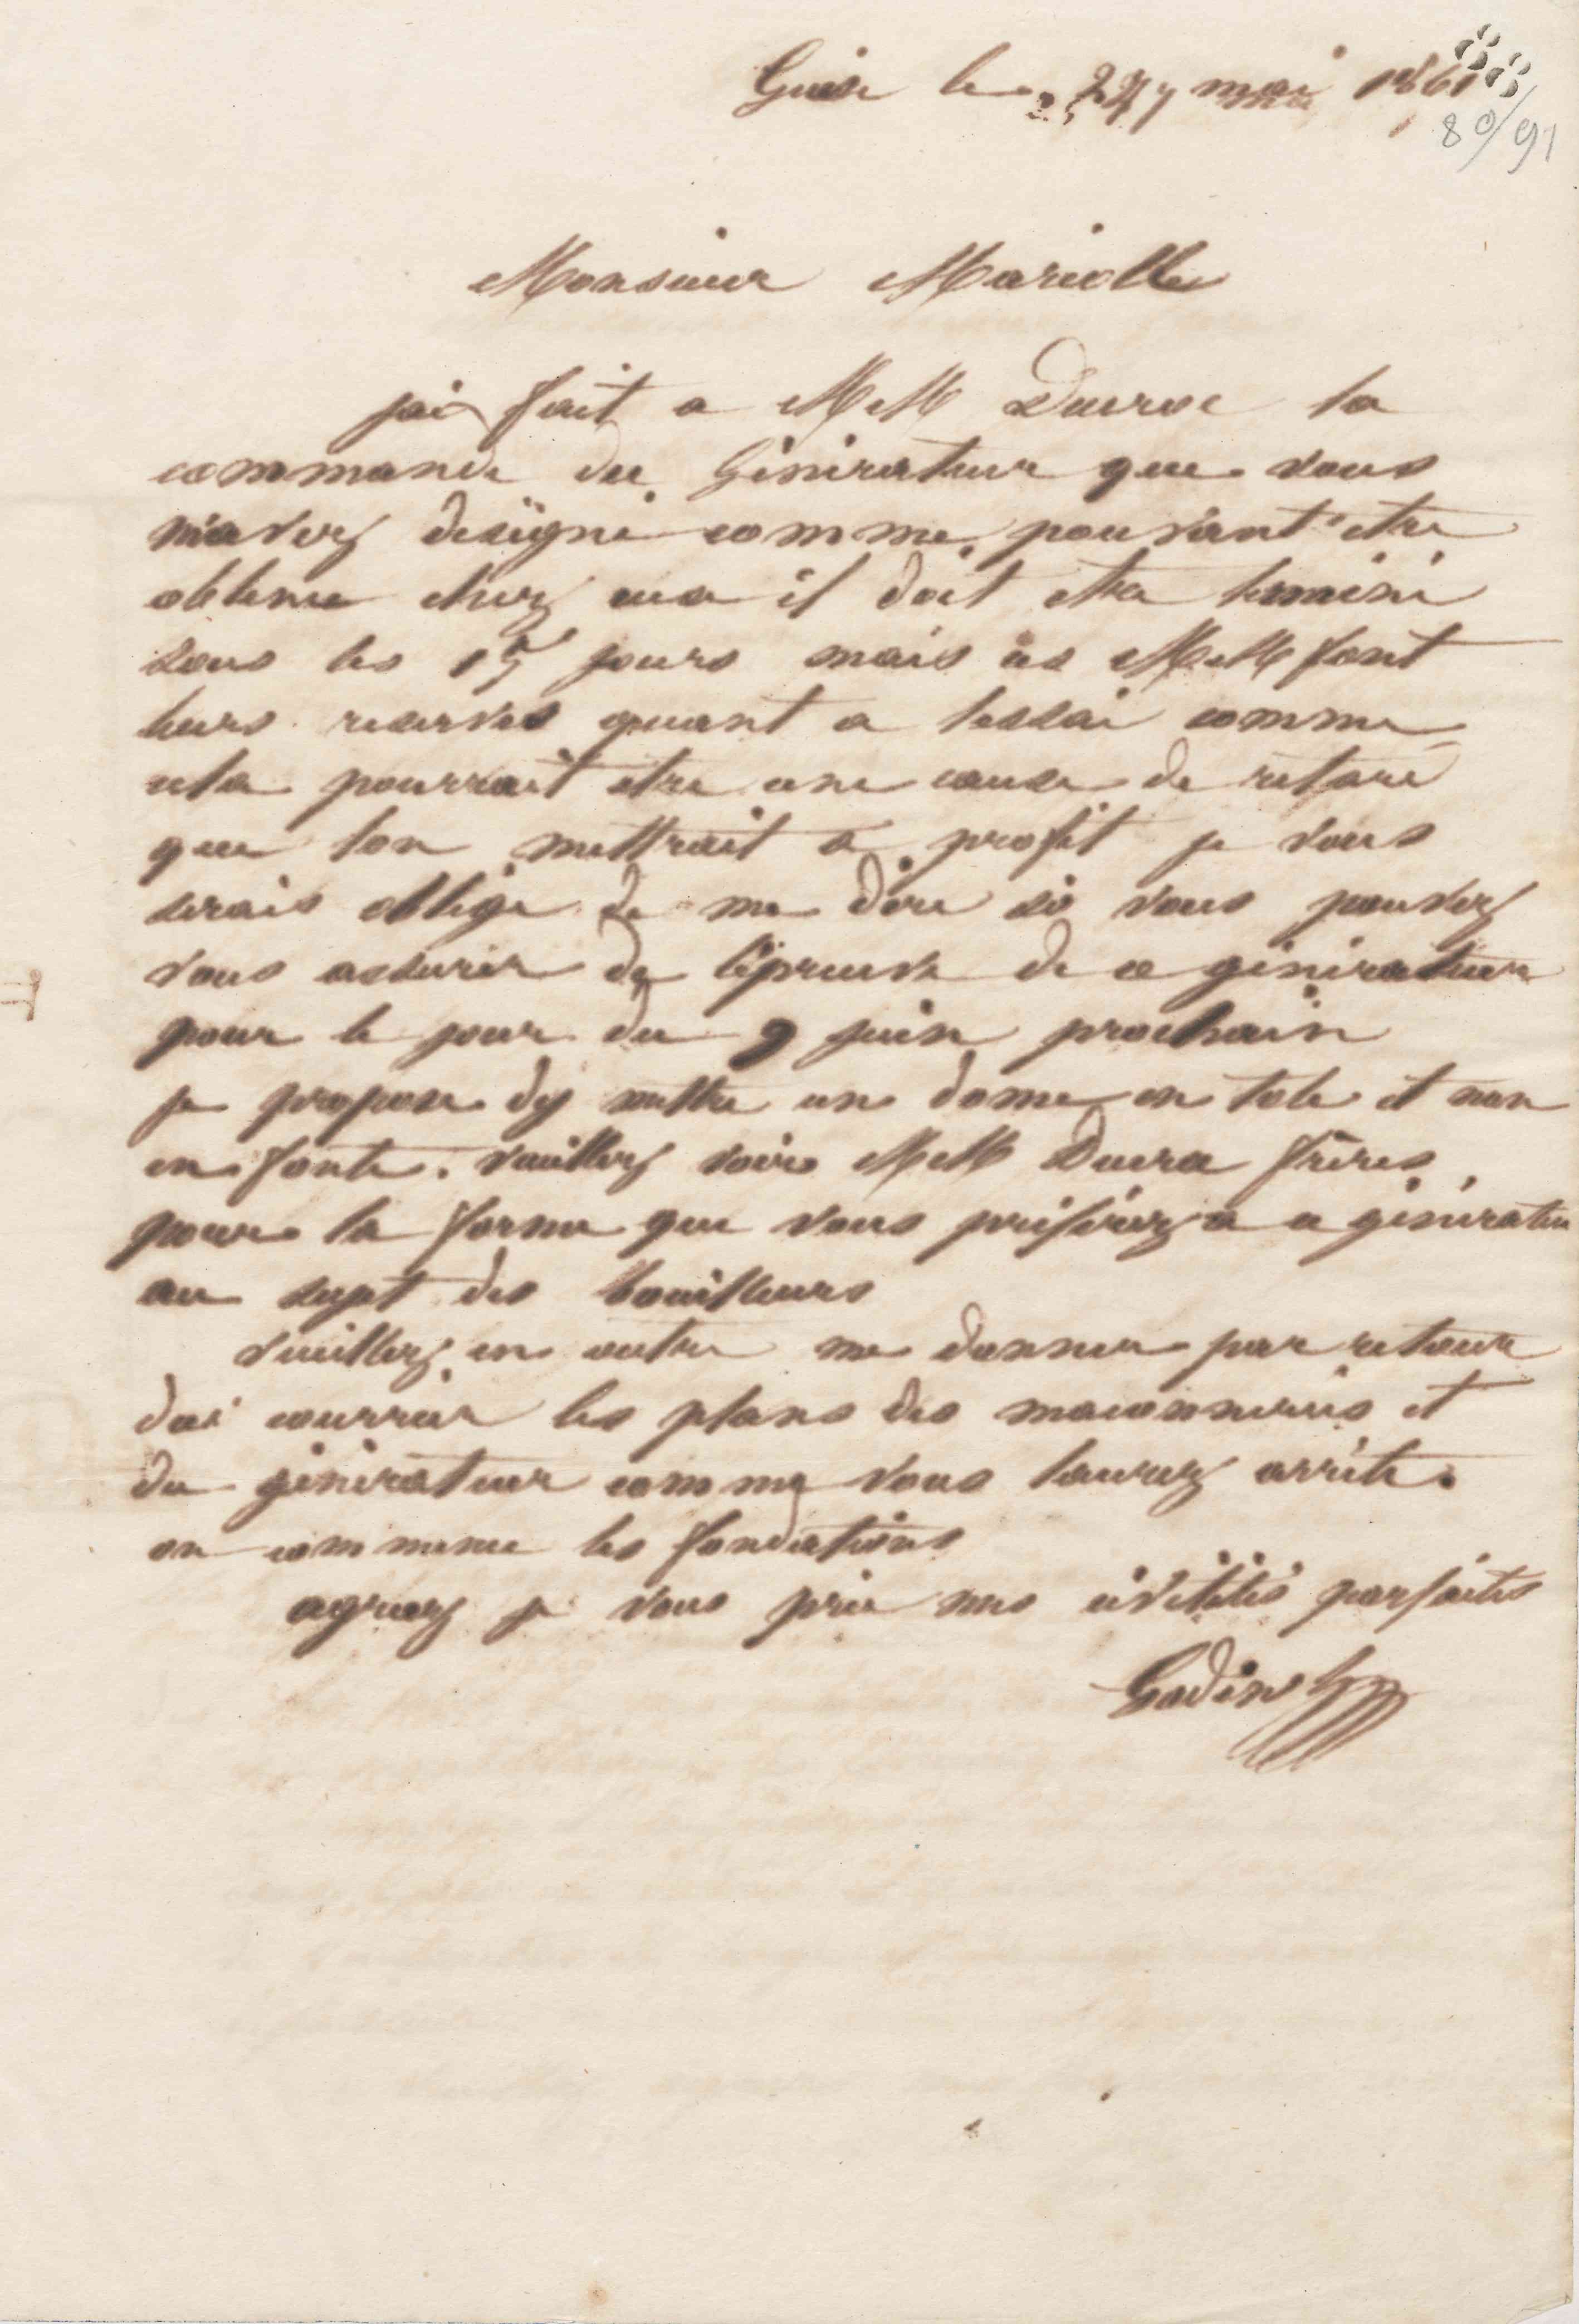 Guise le 27 mai 1861
88
80/91
Monsieur Mariolle
jai fait a MM Ducroc la
commande du Générateur que vous
m'avez designé comme pouvant etre
obtenu chez eux il doit etre terminé
sous les 15 jours mais ces MM font
leurs reserves quant a lessai comme
cela pourrait etre une cause de retard
que lon mettrait a profit je vous
serais obligé de me dire si vous pouvez
vous assurer de l'épreuve de ce générateur
pour le jour du 9 juin prochain
je propose dy mettre un dome en tole et non
en fonte. veuillez voir MM Ducroc frères
pour la forme que vous préférez a ce générateur
au sujet des bouilleurs
veuillez en outre me donner par retour
du courrier les plans des maconneries et
du générateur comme vous laurez arrêté.
on commence les fondations
agreez je vous prie mes civilités parfaites
Godin